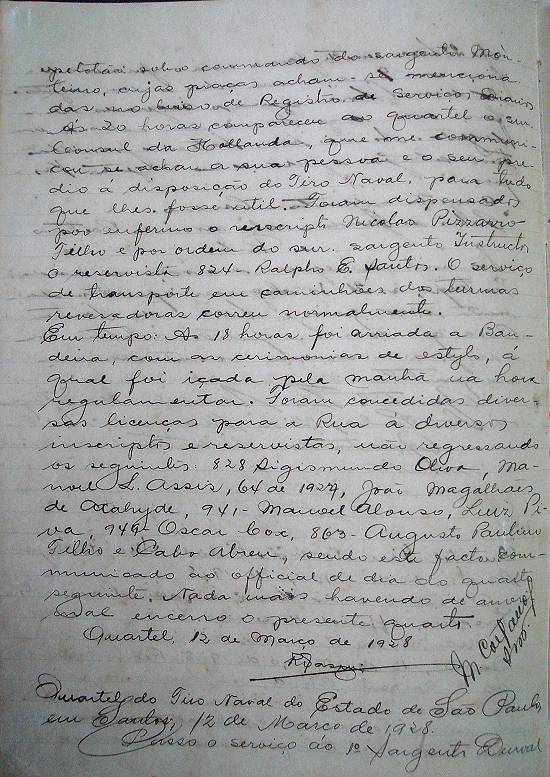 pelotão sob o commando do sargento Mon-
teiro, cujas praças acham-se menciona
das no Livro de Registro de Serviços Diarios
As 20 horas compareceu ao quartel o snr.
Consul da Hollanda, que me communi-
cou se achar a sua pessoa e o seu pre-
dio á disposição do Tiro Naval, para tudo
que lhes fosse util. Foram dispensados
por enfermo o inscripto Nicolao Pizzarro
Filho e por ordem do snr. sargento Instructor
o reservista 824-Ralpho E. Santos. O serviço
de transporte em caminhões das turmas
revesadoras correu normalmente.
Em tempo: As 18 horas foi arriada a Ban-
deira, com as cerimonias de estylo, á
qual foi içada pela manhã na hora
regulamentar. Foram concedidas diver-
sas licenças para a Rua á diversos
inscriptos e reservistas, não regressando
os seguintes: 828 Sigismundo Oliva, Ma-
noel L. Assis, 64 de 1927, João Magalhães
de Atahyde, 941-Manoel Alonso, Luiz Pi-
va, 949-Oscar Cox, 863-Augusto Paulino
Filho e Cabo Abreu, sendo este facto com-
municado ao official de dia ao quarto
seguinte. Nada mais havendo de anor-
mal encerro o presente quarto.
Quartel, 12 de Março de 1928
M.
Quartel do Tiro Naval do Estado de São Paulo,
em Santos, 12 de Março de 1928.
Passo o serviço ao 1º Sargento Durval